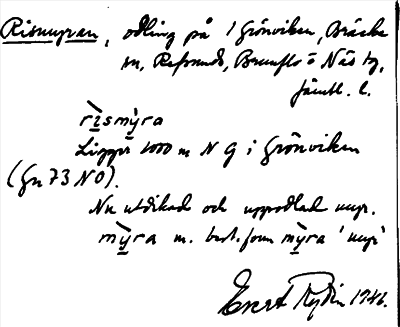 Rismyran, odling på 1 Grönviken, Bräcke
sn, Refsunds, Brunflo o Näs tg,
Jämtl. l.
rìsmỳra
Ligger 1000 m N g i Grönviken
(Gn 73 NO).
Nu utdikad och uppodlad myr.
mỳra m. best. form mỳra 'myr'
Evert Rydin 1946.